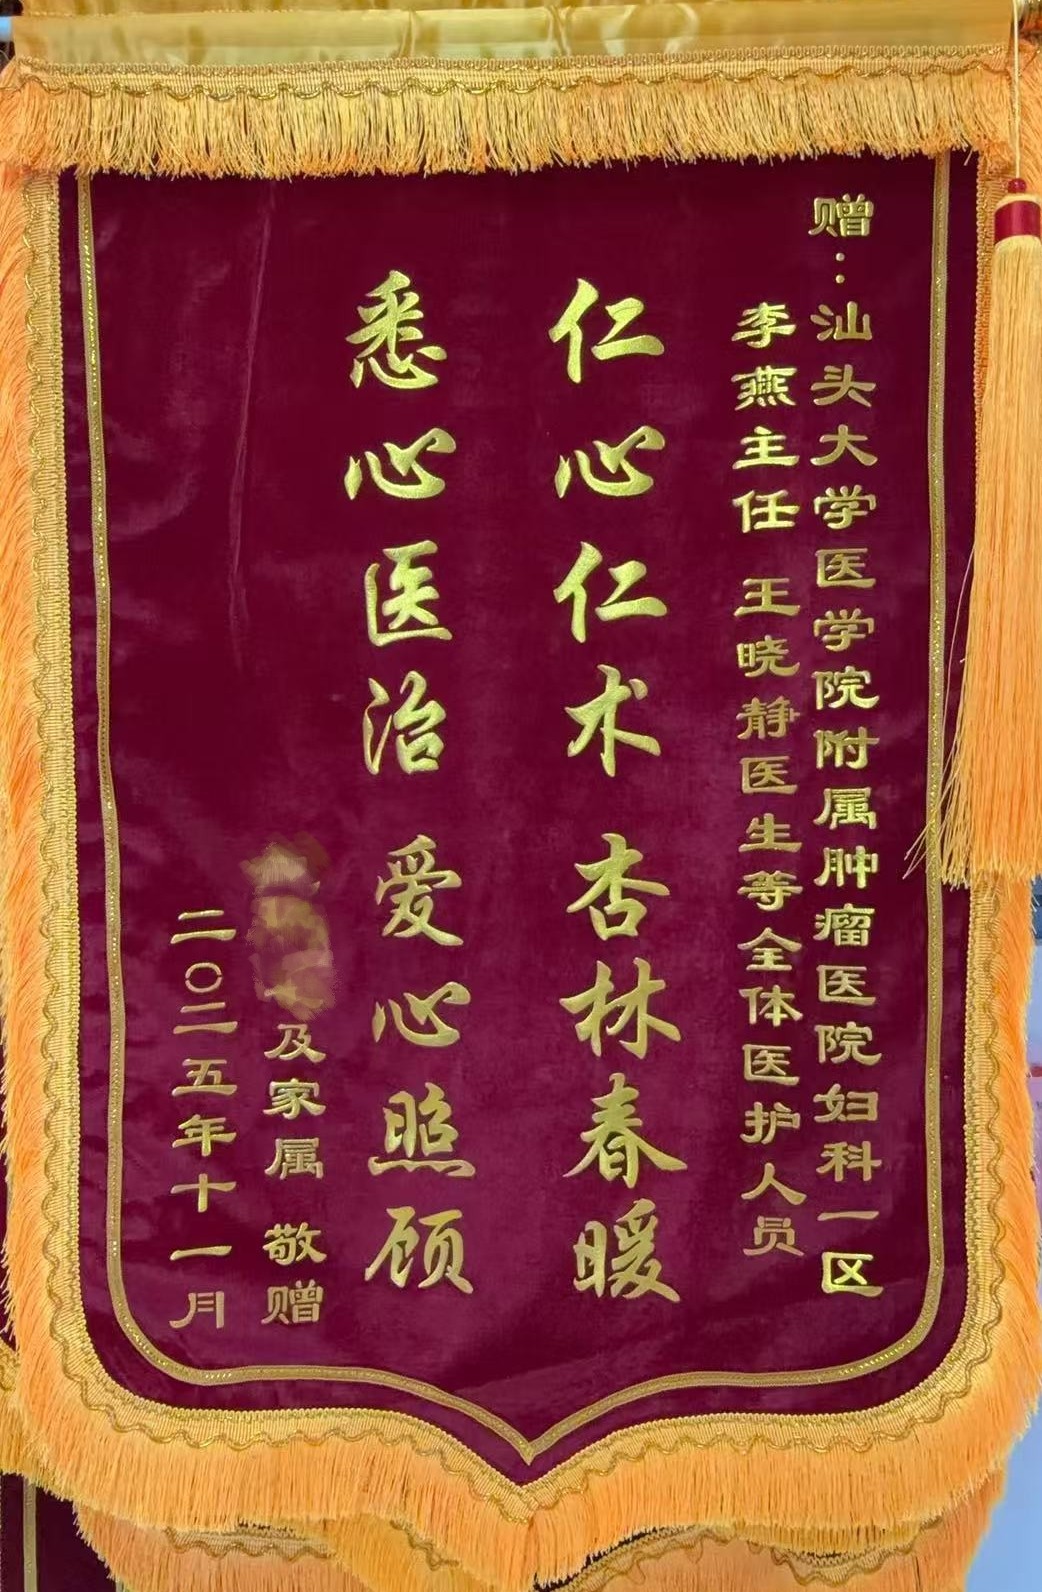 赠：汕头大学医学院附属肿瘤医院妇科一区
李燕主任 王晓静医生等全体医护人员
仁心仁术 杏林春暖
悉心医治 爱心照顾
及家属 敬赠
二〇二五年十一月